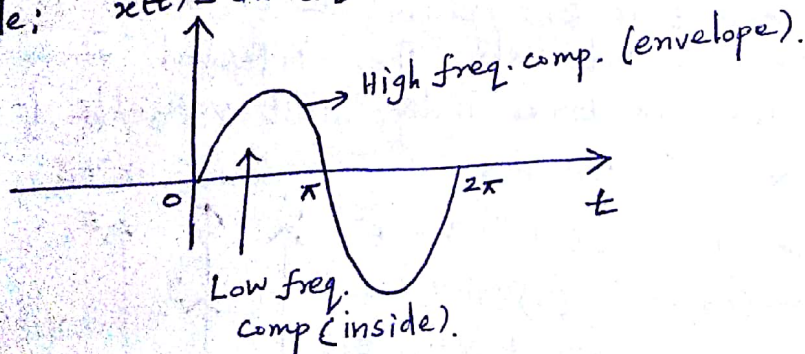 x(t) =
High freq. comp. (envelope).
0 π 2π
t
Low freq.
comp (inside).